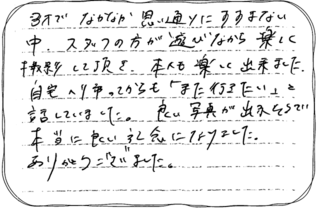 3才でなかなか思い通りにすすまない
中、スタッフの方が遊びながら楽しく
撮影して頂き、本人も楽しく出来ました。
自宅へ帰ってからも「また行きたい」と
話していました。良い写真が出来そうで
本当に良い記念になりました。
ありがとうございました。